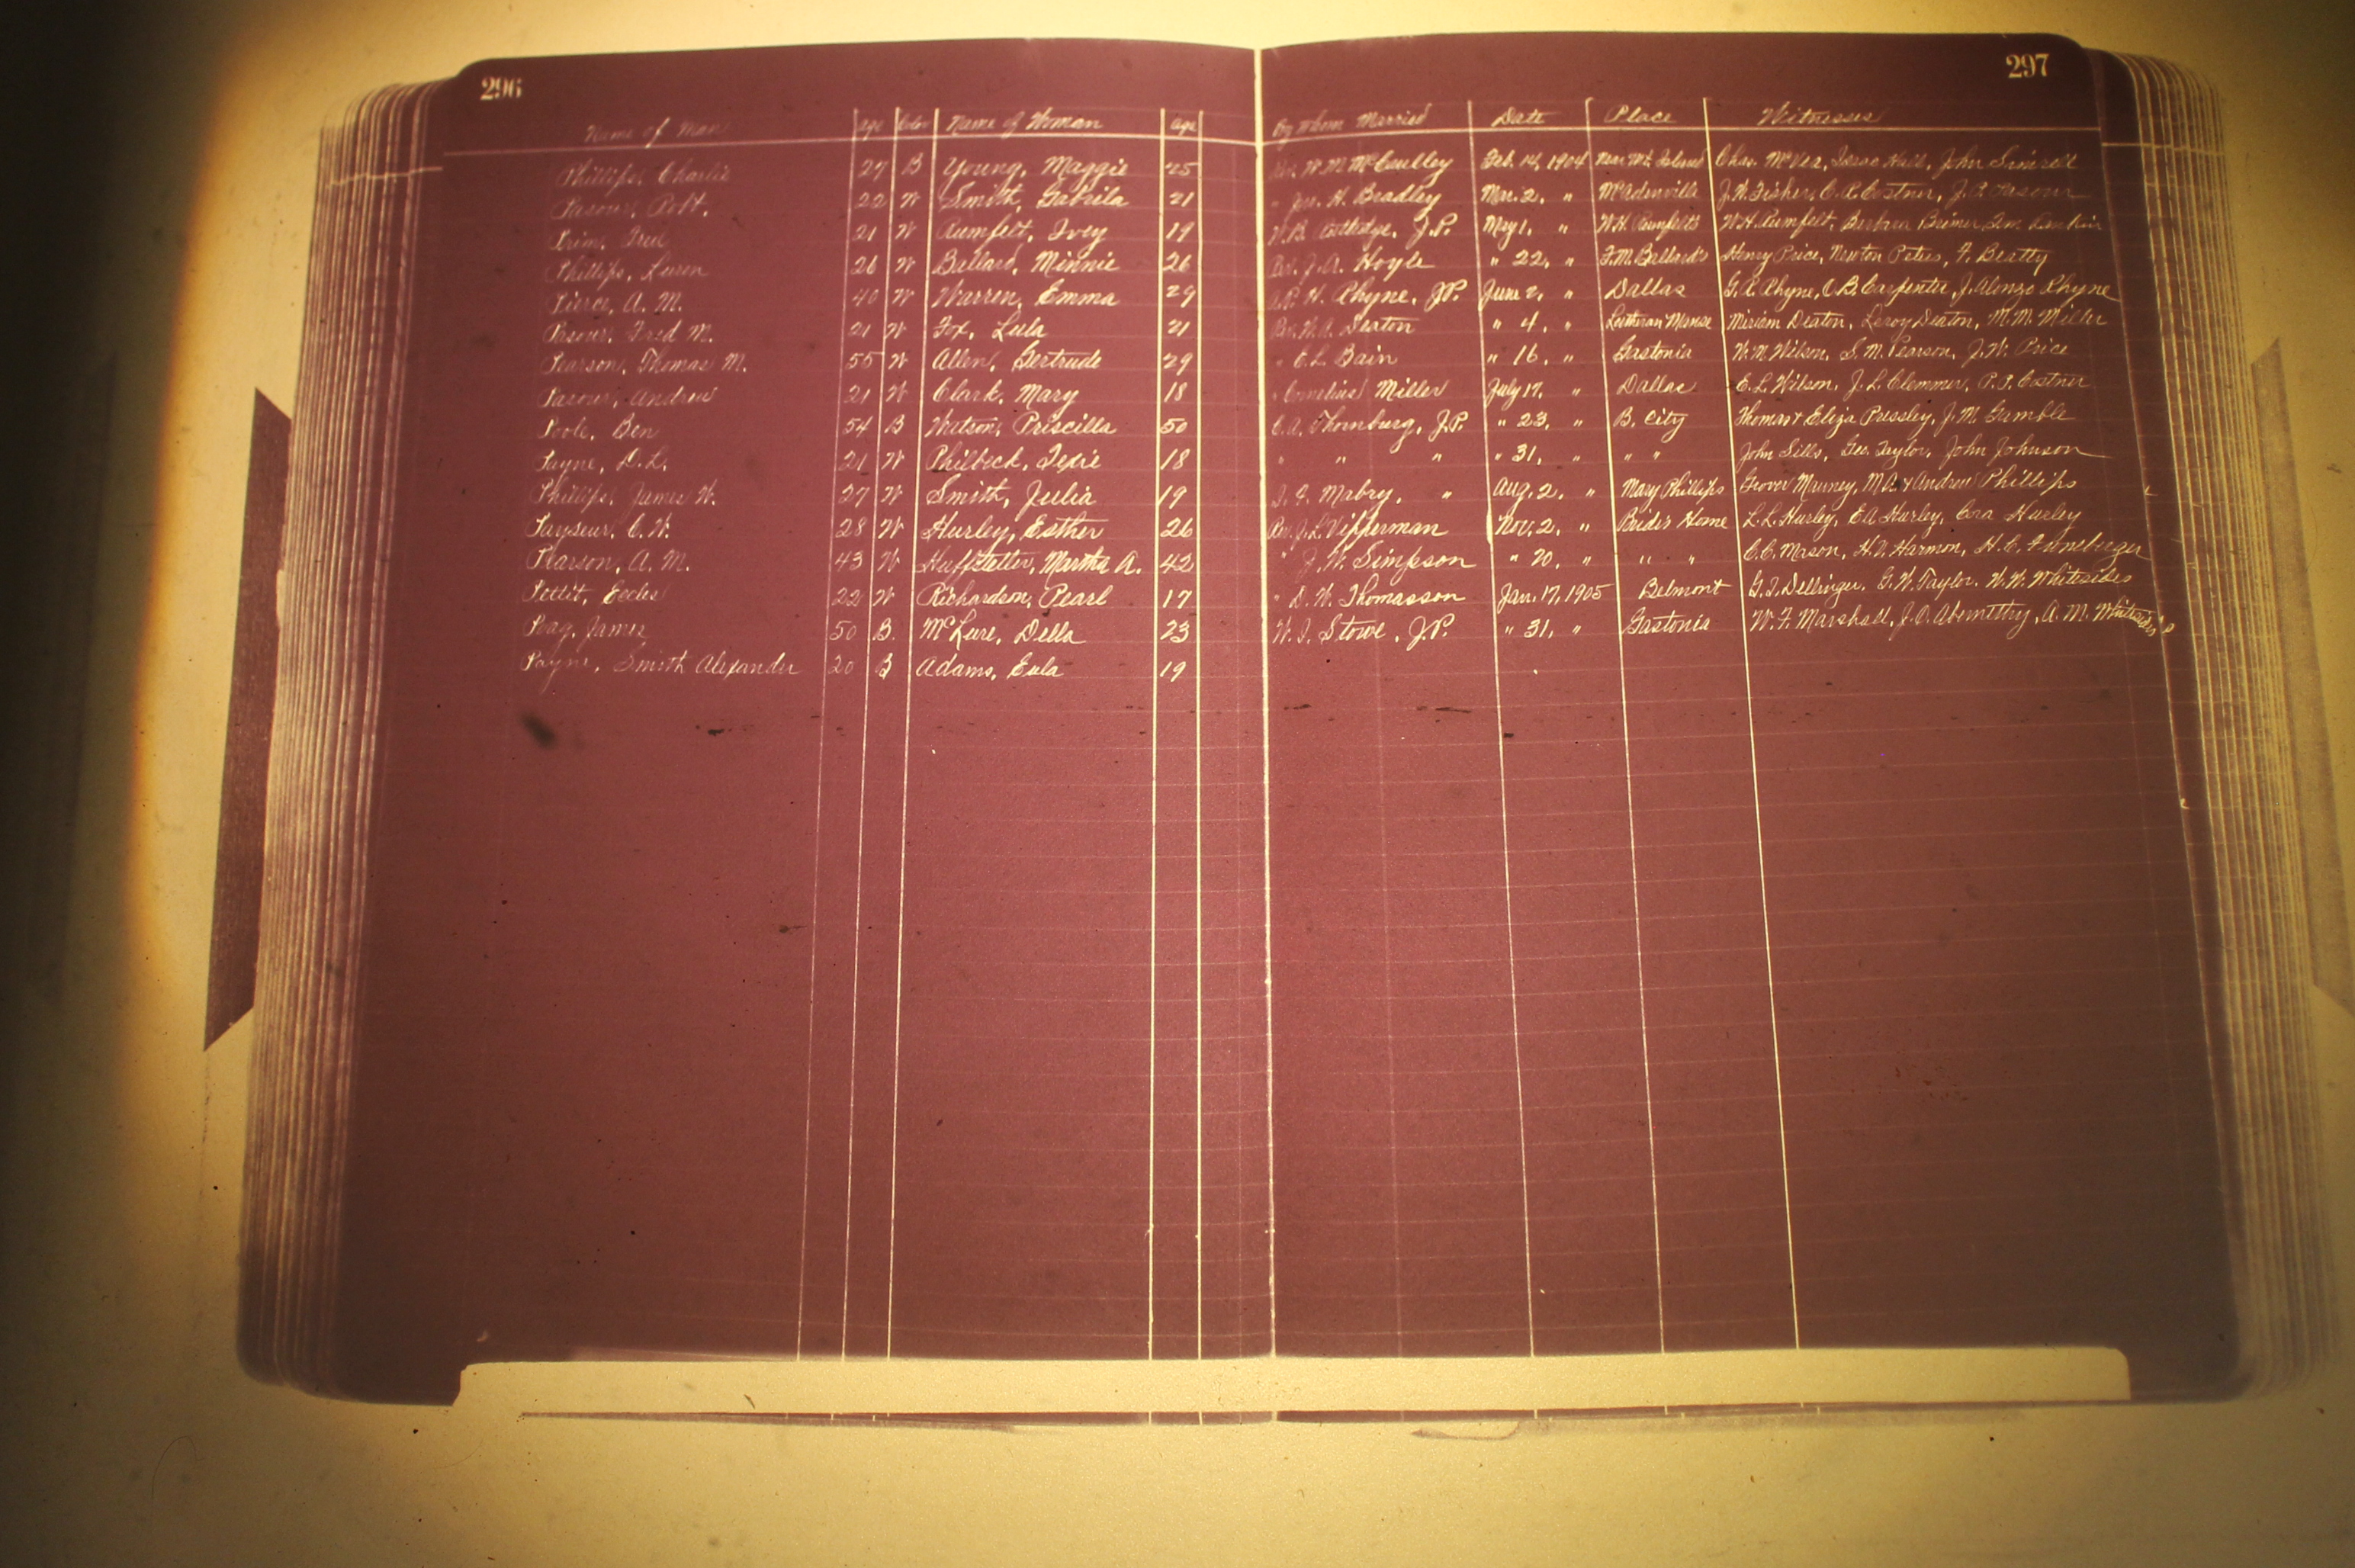 296 297
Name of Man Age Color Name of Woman Age By Whom Married Date Place Witnesses
Phillips, Charlie 27 B Young, Maggie 25 Rev. W. M. McCaulley Feb. 14, 1904 Near Mt. Island Chas. McVea, Isaac Hall, John
Pasour, Robt. 22 W Smith, Gabrila 21 " Jno. H. Bradley Mar. 2, " McAdenville J. W. Fisher, C. P. Costner, J. P. Pasour
Prim, Fred 21 W Rumfelt, Ivey 19 W. B. Rutledge, J.P. May 1, " W. H. Rumfelt's W. H. Rumfelt, Barbara
Phillips, Luren 26 W Ballard, Minnie 26 Rev. J. A. Hoyle " 22, " F. M. Ballard's Henry Price, Newton Peters, F. Beatty
Pierce, A. M. 40 W Warren, Emma 29 H. Rhyne, J.P. June 2, " Dallas G. R. Rhyne, O. B. Carpenter, J. Alonzo Rhyne
Pasour, Fred M. 21 W Fox, Lula 21 Rev. W. A. Deaton " 4, " Lutheran Manse Miriam Deaton, Leroy Deaton, M. M. Miller
Pearson, Thomas M. 55 W Allen, Gertrude 29 " E. L. Bain " 16, " Gastonia W. M. Wilson, S. M. Pearson, J. W. Price
Pasour, Andrew 21 W Clark, Mary 18 " Cornelius Miller July 17, " Dallas E. L. Wilson, J. L. Clemmer, P. P. Costner
Poole, Ben 54 B Watson, Priscilla 50 C. A. Thornburg, J.P. " 23, " B. City Thomas + Eliza Pressley, J. M. Gamble
Payne, D. L. 21 W Philbeck, Texie 18 " " " " 31, " " " John Sills, Geo. Taylor, John Johnson
Phillips, James W. 27 W Smith, Julia 19 Mabry, " Aug. 2, " Mary Phillips Grover Mauney, M. A. + Andrew Phillips
Payseur, C. W. 28 W Hurley, Esther 26 Rev. J. L. Vipperman Nov. 2, " Bride's Home L. L. Hurley, E. A. Hurley, Cora Hurley
Pearson, A. M. 43 W Huffstetler, Martha A. 42 " J. W. Simpson " 20, " " " C. C. Mason, H. V. Harmon, H. C. Funeburger
Pettit, Eccles 22 W Richardson, Pearl 17 " D. W. Thomasson Jan. 17, 1905 Belmont G. T. Dellinger, G. W. Taylor, W. W. Whitesides
Poag, James 50 B. McLure, Della 23 W. I. Stowe, J.P. " 31, " Gastonia W. F. Marshall, J. O. Abernethy, A. M. Whitesides
Payne, Smith Alexander 20 B Adams, Eula 19